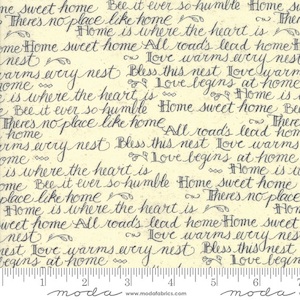 home sweet home Bee it ever so humble Home
There's no place like home Home is where the heart is
Home sweet home All roads lead home Home
nest Love warms every nest
warms every nest Bless this nest Love warms
is where the heart is Love begins at home
Bee it ever so humble Home sweet home Home
There's no place like home
home All roads lead home
every nest Bless this nest Love warms
Love begins at home
Home is where the heart is
ever so humble Home sweet home
There's no place like
Home is where the heart is
sweet home All roads lead home Home sweet
nest Love warms every nest Bless this nest
begins at home Love begins
1 2 3 4 5 6 7
moda www.modafabrics.com moda